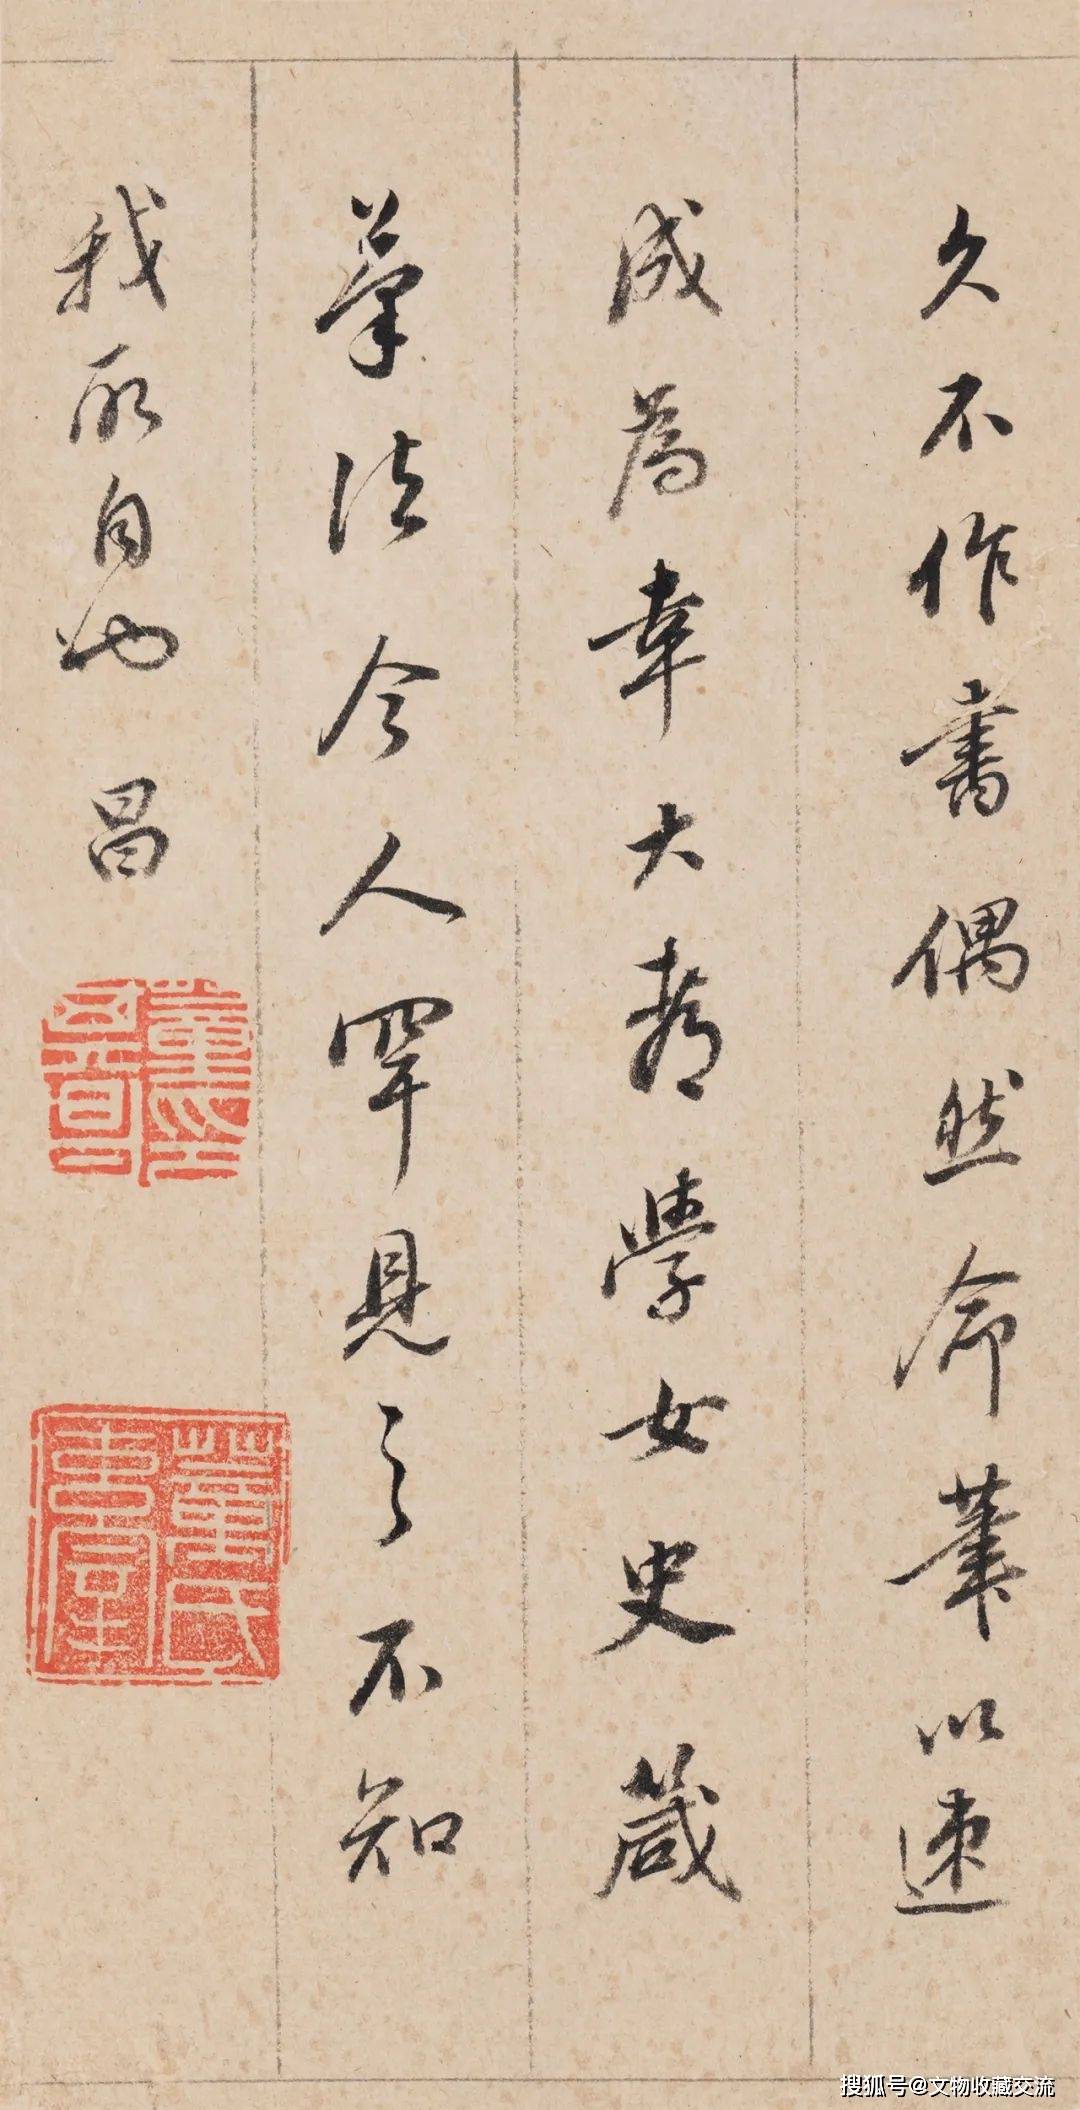 久不作書偶然命筆以速
成為幸大都學女史箴
筆法今人罕見之不知
我所自也 昌
董其昌印
董氏書室
搜狐号@文物收藏交流